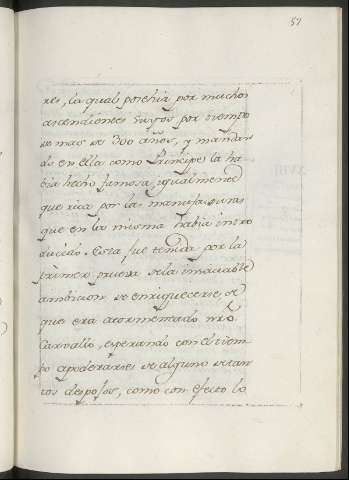 57
res, la qual posehia por muchos
ascendientes suyos por tiempo
de mas de 300 años, y mandan
do en ella como Principe la ha
bia hecho famosa, igualmente
que rica por las manufacturas
que en la misma habia intro
ducido. Esta fue tenida por la
primer prueva de la insaciable
ambicion de enriquecerse, de
que era atormentado nro
Carvallo, esperando con el tiem
po apoderarse de alguno de tan
tos despojos, como con efecto lo